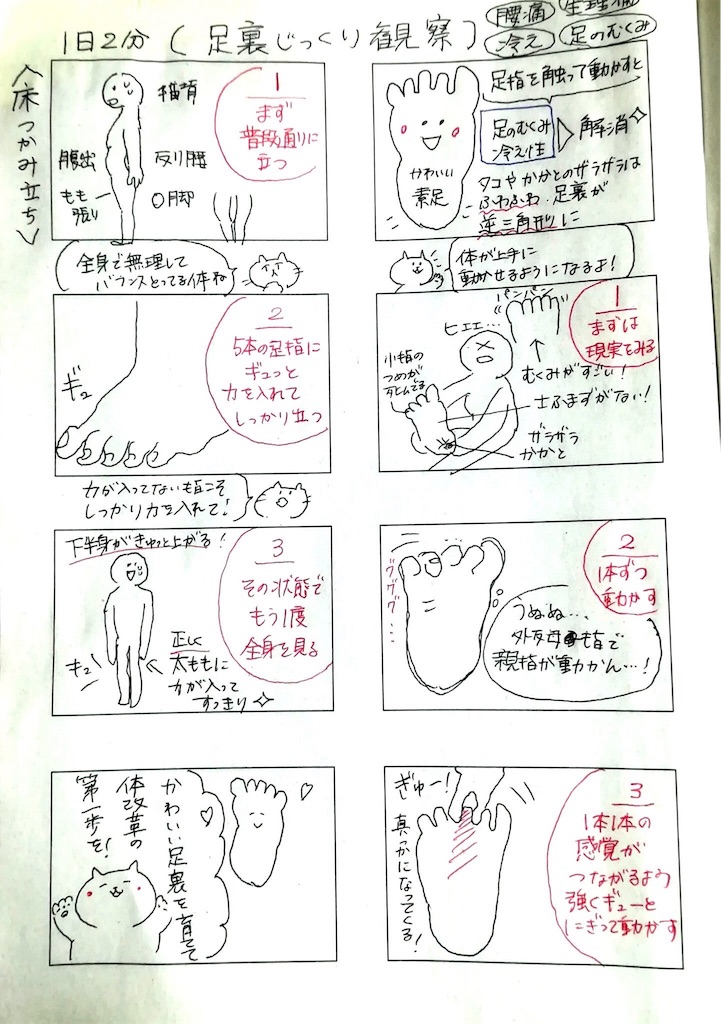 1日2分(足裏じっくり観察)
腰痛
生理痛
冷え
足のむくみ
足指を触って動かすと
足のむくみ
冷え性
解消
かわいい
素足
タコやかかとのザラザラは
ふわふわ、足裏が
逆三角形に
体が上手に
動かせるようになるよ!
1
まずは
現実をみる
パンパン
ヒエエ…
小指の
つめが
死んでる
むくみがすごい!
土ふまずがない!
ザラザラ
かかと
2
1本ずつ
動かす
ググググ…
うぬぬ…
外反母趾で
親指が動かん…!
3
1本1本の
感覚が
つながるよう
強くギューと
にぎって動かす
ぎゅー!
真っかになってくる!
〈床つかみ立ち〉
1
まず
普段通りに
立つ
猫背
腹出
反り腰
もも
張り
O脚
全身で無理して
バランスとってる体ね
2
5本の足指に
ギュッと
力を入れて
しっかり立つ
ギュ
力が入ってない指こそ
しっかり力を入れて!
下半身がきゅっと上がる!
3
その状態で
もう1度
全身を見る
キュ
正しく
太ももに
力が入って
すっきり
かわいい足裏を育てて
体改革の
第一歩を!